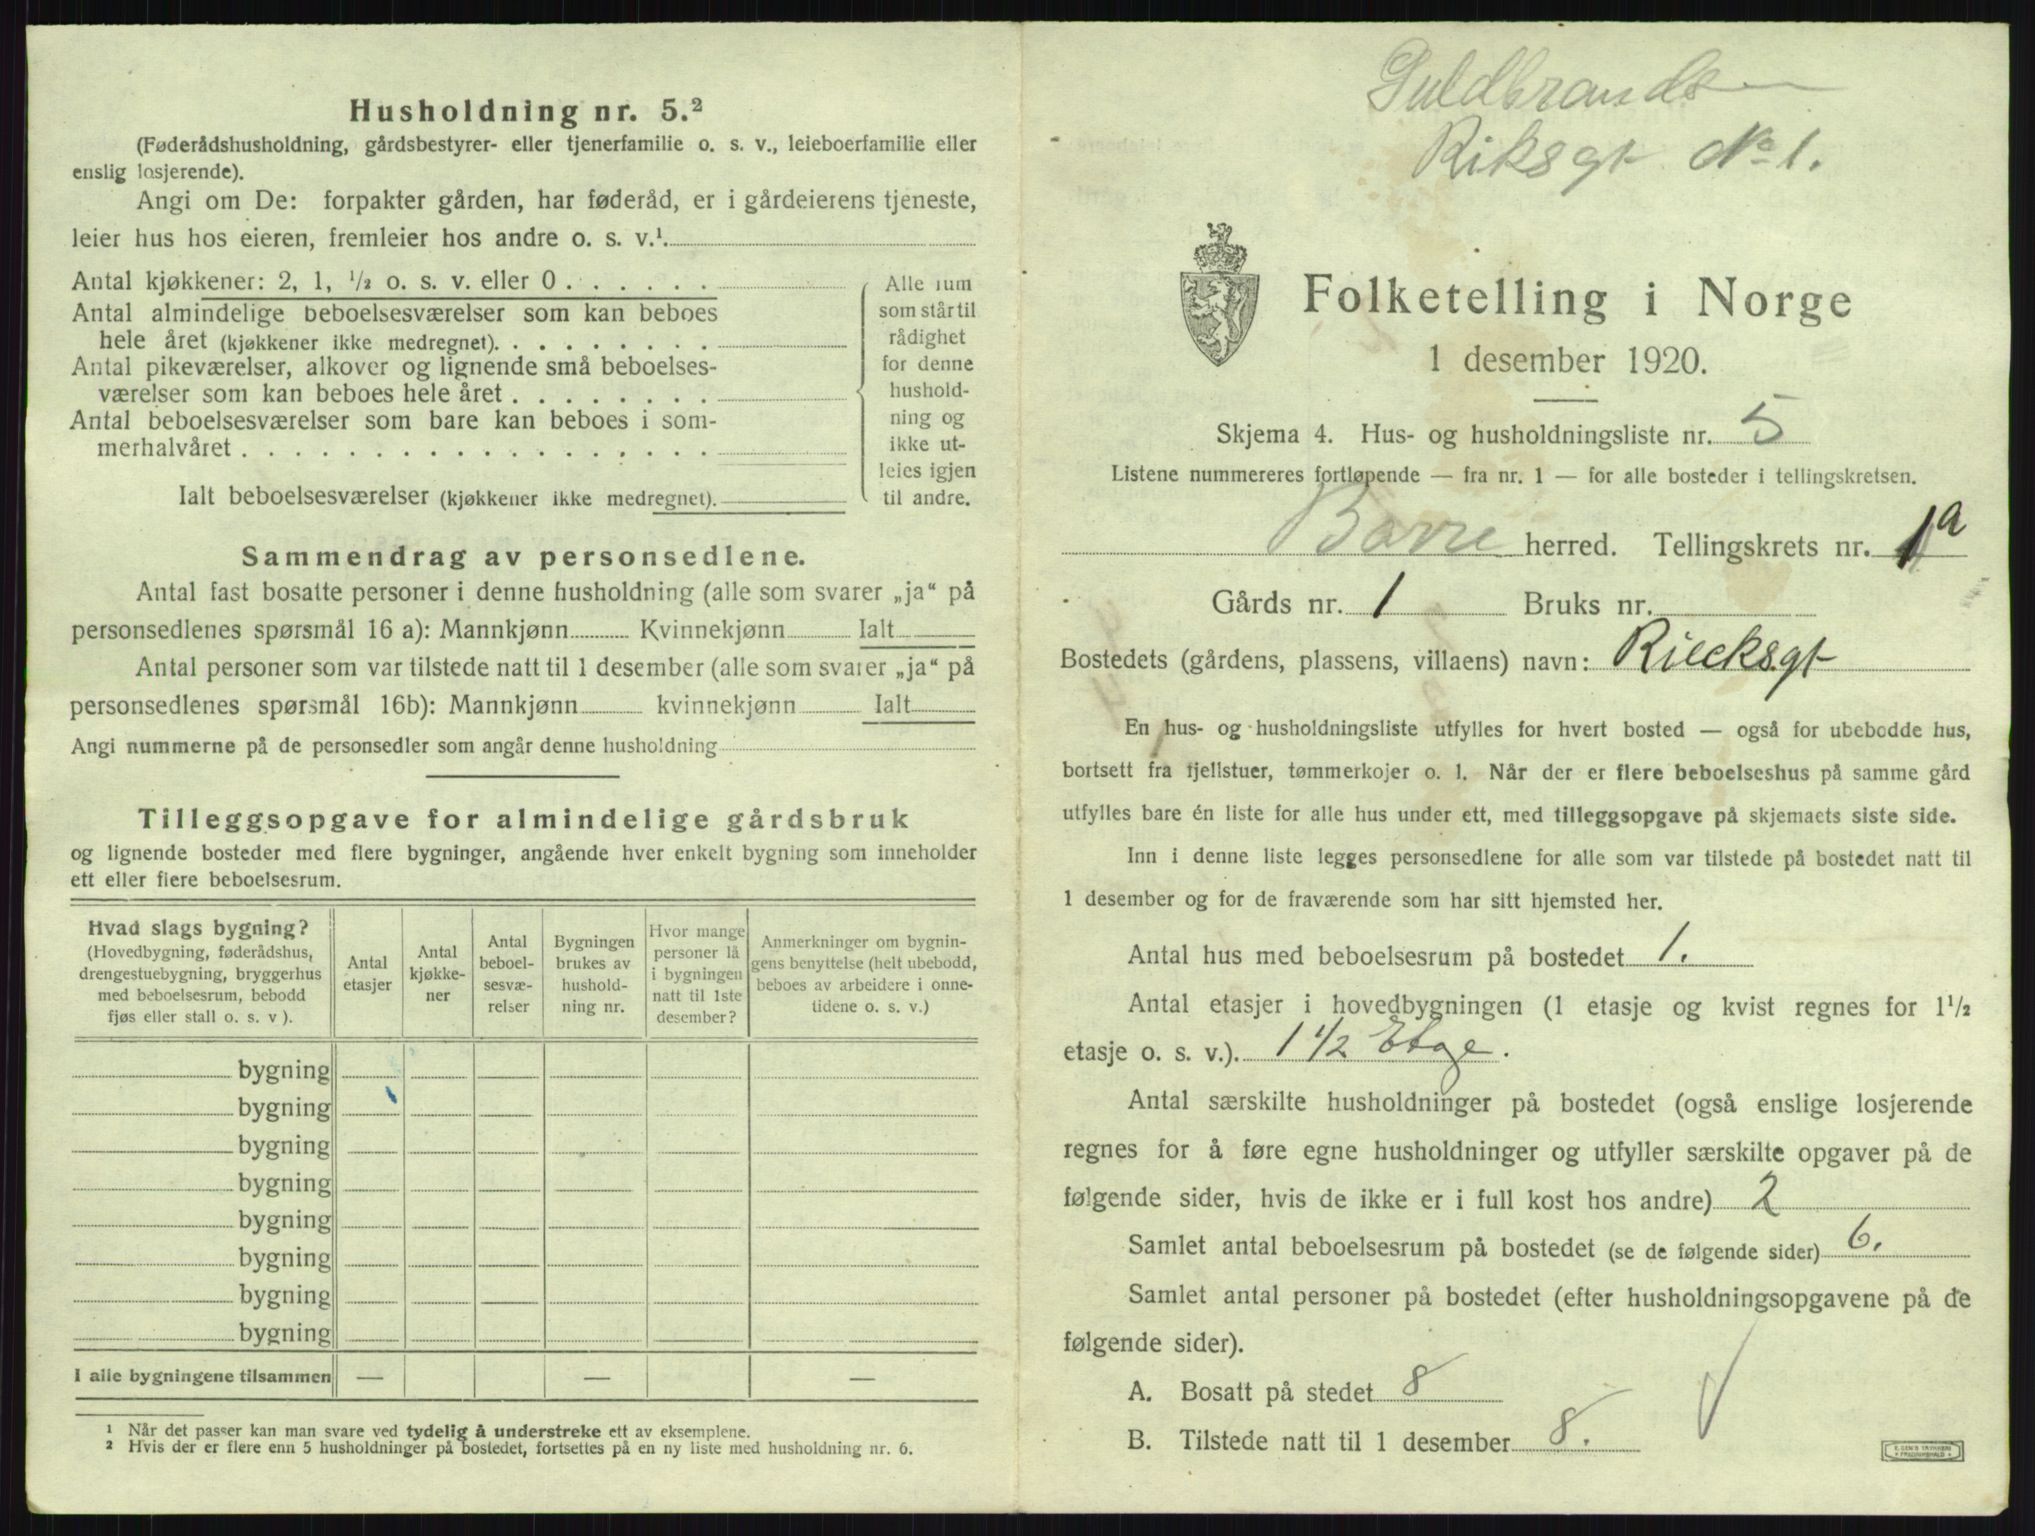 Husholdning nr. 5.²
(Føderådshusholdning, gårdsbestyrer- eller tjenerfamilie o. s. v., leieboerfamilie eller
enslig losjerende).
Angi om De: forpakter gården, har føderåd, er i gårdeierens tjeneste,
leier hus hos eieren, fremleier hos andre o. s. v.¹.
Antal kjøkkener: 2, 1, ¹/₂ o. s. v. eller 0 . . . . . .
Antal almindelige beboelsesværelser som kan beboes
hele året (kjøkkener ikke medregnet). . . . . . . . .
Antal pikeværelser, alkover og lignende små beboelses-
værelser som kan beboes hele året . . . . . . . .
Antal beboelsesværelser som bare kan beboes i som-
merhalvåret . . . . . . . . . . . . . . . . . .
Ialt beboelsesværelser (kjøkkener ikke medregnet).
Alle rum
som står til
rådighet
for denne
hushold-
ning og
ikke ut-
leies igjen
til andre.
Sammendrag av personsedlene.
Antal fast bosatte personer i denne husholdning (alle som svarer „ja“ på
personsedlenes spørsmål 16 a): Mannkjønn Kvinnekjønn Ialt
Antal personer som var tilstede natt til 1 desember (alle som svarer „ja“ på
personsedlenes spørsmål 16b): Mannkjønn kvinnekjønn Ialt
Angi nummerne på de personsedler som angår denne husholdning
Tilleggsopgave for almindelige gårdsbruk
og lignende bosteder med flere bygninger, angående hver enkelt bygning som inneholder
ett eller flere beboelsesrum.
Hvad slags bygning?
(Hovedbygning, føderådshus,
drengestuebygning, bryggerhus
med beboelsesrum, bebodd
fjøs eller stall o. s. v ).
Antal
etasjer
Antal
kjøkke-
ner
Antal
beboel-
sesvæ-
relser
Bygningen
brukes av
hushold-
ning nr.
Hvor mange
personer lå
i bygningen
natt til 1ste
desember?
Anmerkninger om bygnin-
gens benyttelse (helt ubebodd,
beboes av arbeidere i onne-
tidene o. s. v.)
bygning
bygning
bygning
bygning
bygning
bygning
bygning
bygning
I alle bygningene tilsammen — — —
¹ Når det passer kan man svare ved tydelig å understreke ett av eksemplene.
² Hvis der er flere enn 5 husholdninger på bostedet, fortsettes på en ny liste med husholdning nr. 6.
Guldbrands
Riksgt No 1.
Folketelling i Norge
1 desember 1920.
Skjema 4. Hus- og husholdningsliste nr. 5
Listene nummereres fortløpende — fra nr. 1 — for alle bosteder i tellingskretsen.
Borre herred. Tellingskrets nr. 1a
Gårds nr. 1 Bruks nr.
Bostedets (gårdens, plassens, villaens) navn: Riecksgt
En hus- og husholdningsliste utfylles for hvert bosted — også for ubebodde hus,
bortsett fra fjellstuer, tømmerkojer o. l. Når der er flere beboelseshus på samme gård
utfylles bare én liste for alle hus under ett, med tilleggsopgave på skjemaets siste side.
Inn i denne liste legges personsedlene for alle som var tilstede på bostedet natt til
1 desember og for de fraværende som har sitt hjemsted her.
Antal hus med beboelsesrum på bostedet 1.
Antal etasjer i hovedbygningen (1 etasje og kvist regnes for 1¹/₂
etasje o. s. v.). 1 1/2 Etage.
Antal særskilte husholdninger på bostedet (også enslige losjerende
regnes for å føre egne husholdninger og utfyller særskilte opgaver på de
følgende sider, hvis de ikke er i full kost hos andre) 2
Samlet antal beboelsesrum på bostedet (se de følgende sider) 6.
Samlet antal personer på bostedet (efter husholdningsopgavene på de
følgende sider).
A. Bosatt på stedet 8
B. Tilstede natt til 1 desember 8.